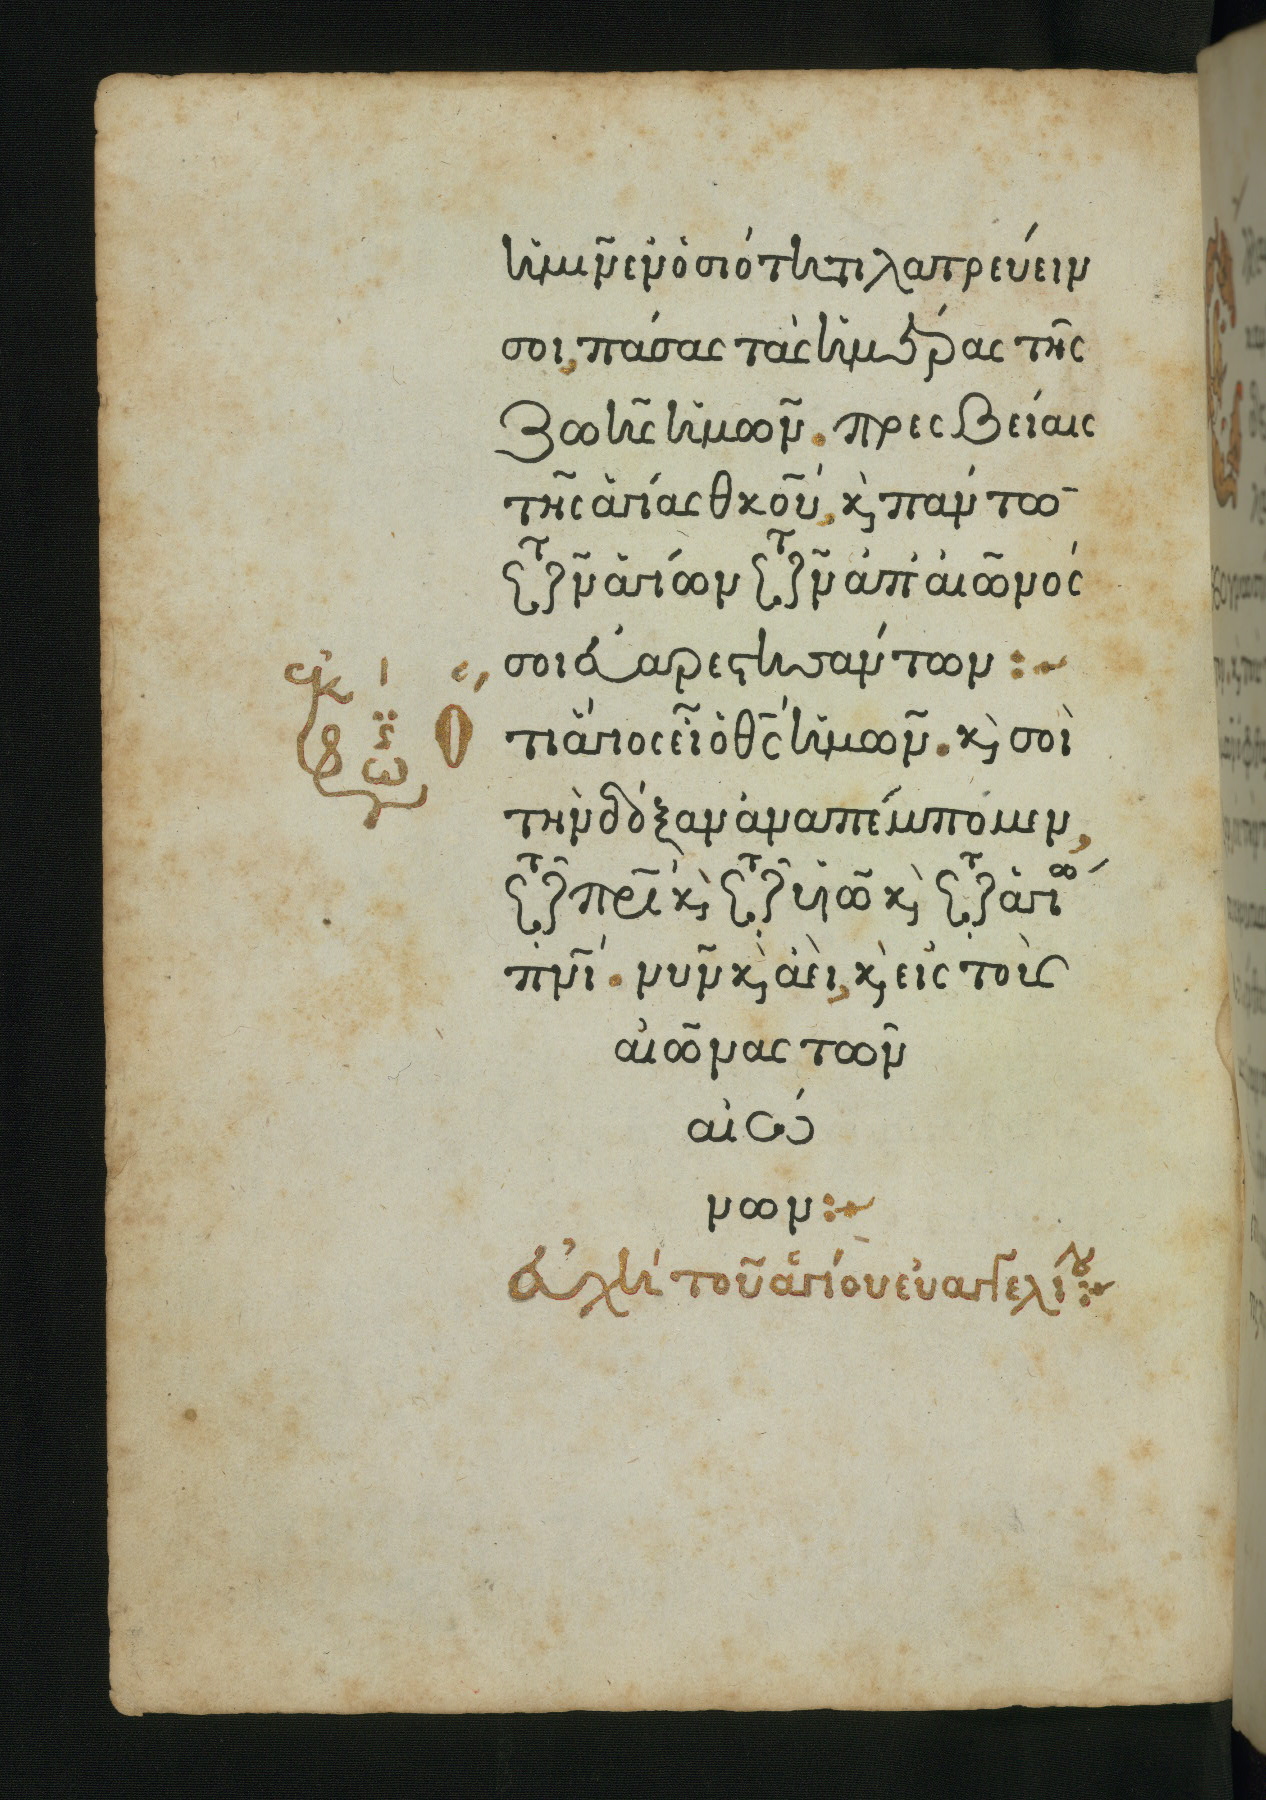 ἡμῖν ἐν ὁσιότητι λατρεύειν
σοι, πάσας τὰς ἡμέρας τῆς
ζωῆς ἡμῶν. πρεσβείαις
τῆς ἁγίας θκοῦ, κ̀ πάντω
τῶν ἁγίων τῶν ἀπ' αἰῶνός
σοι εὐαρεστησάντων :~
ἐκφώ
Ὅτι ἅγιος εἶ ὁ θς ἡμῶν. κ̀ σοὶ
τὴν δόξαν ἀναπέμπομεν,
τῶ πρὶ κ̀ τῶ υἱῶ κ̀ τῶ ἁγίω
πνὶ. νῦν κ̀ ἀεὶ, κ̀ εἰς τοὺς
αἰῶνας τῶν
αἰώ
νων :~
εὐχὴ τοῦ ἁγίου εὐαγγελίου :~